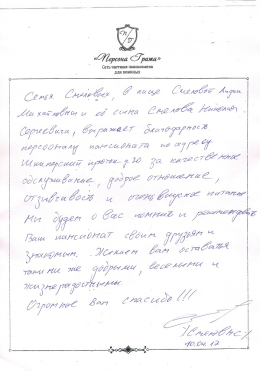 «Персона Грата»
Сеть частных пансионатов
для пожилых
Семья Смеловых, в лице Смеловой Лидии
Михайловны и её сына Смелова Николая
Сергеевича, выражает благодарность
персоналу пансионата по адресу
проезд 20 за качественное
обслуживание, доброе отношение,
отзывчивость и питание
Мы будем о Вас помнить и рекомендовать
Ваш пансионат своим друзьям и
знакомым. Желаем вам оставаться
такими же добрыми, веселыми и
жизнерадостными.
Огромное Вам спасибо!!!